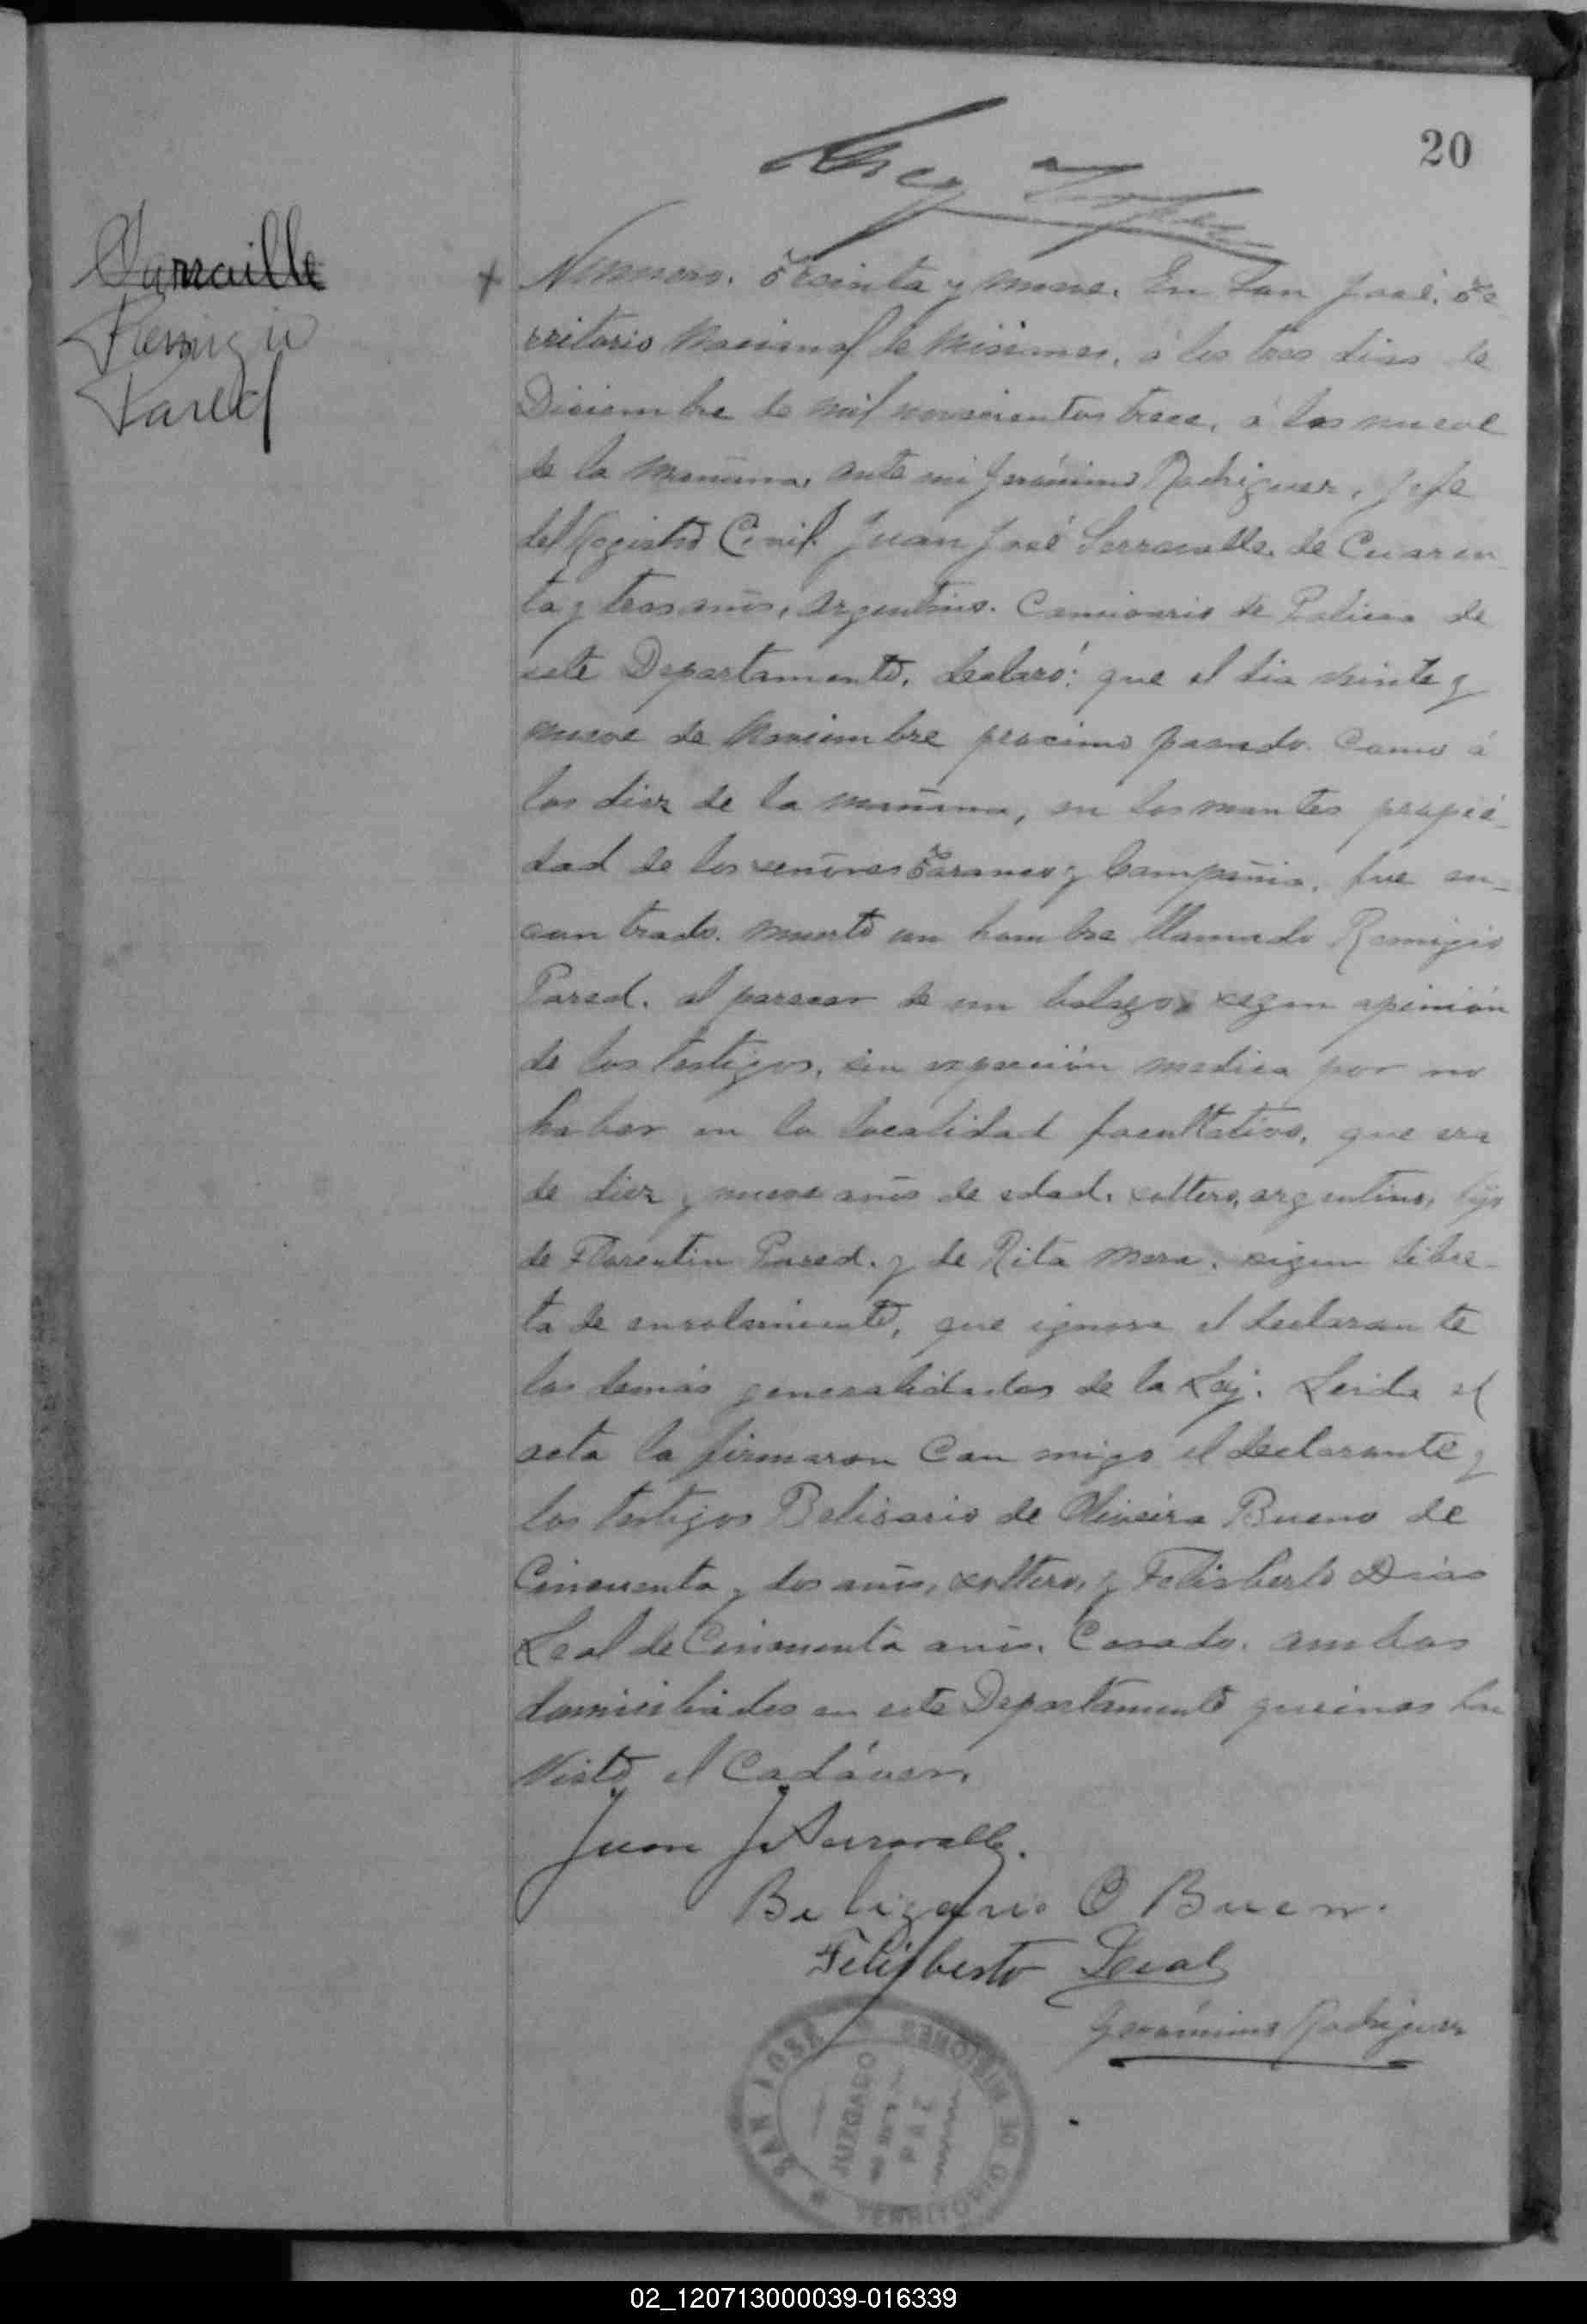 20
Remigio
Pared
Numero. Treinta y nueve. En San José, Te
rritorio Nacional de Misiones, á los tres dias de
Diciembre de mil novecientos trece, á las nueve
de la mañana, ante mi Jerónimo Rodriguez, Jefe
del Registro Civil. Juan José Serravalle, de Cuaren
ta y tres años, argentino. Comisario de Policia de
este Departamento, declaró: que el dia veinte y
nueve de Noviembre procimo pasado. Como á
las diez de la mañana, en los montes propie-
dad de los señores y Compañia, fue en-
contrado. muerto un hombre llamado Remigio
Pared. al parecer de un balazo, segun opinión
de los testigos, sin espreción medica por no
haber en la localidad facultativo, que era
de diez y nueve años de edad, soltero, argentino, hijo
de Florentin Pared. y de Rita Mora, sigun libre-
ta de enrolamiento, que ignora el declarante
las demás generalidades de la Ley. Leida el
acta la firmaron Con migo el declarante y
los testigos Belisario de Oliveira Bueno de
Cincuenta y dos años, soltero, y Felisberto Dias
Leal de Cincuenta años, Casado, ambos
domiciliados en este Departamento quienes han
visto el Cadáver.
Juan J Serravalle.
Belizario O Bueno.
Felisberto Leal
Gerónimo Rodriguez
SAN JOSÉ
TERRITORIO DE MISIONES
JUZGADO
DE
PAZ
02_120713000039-016339